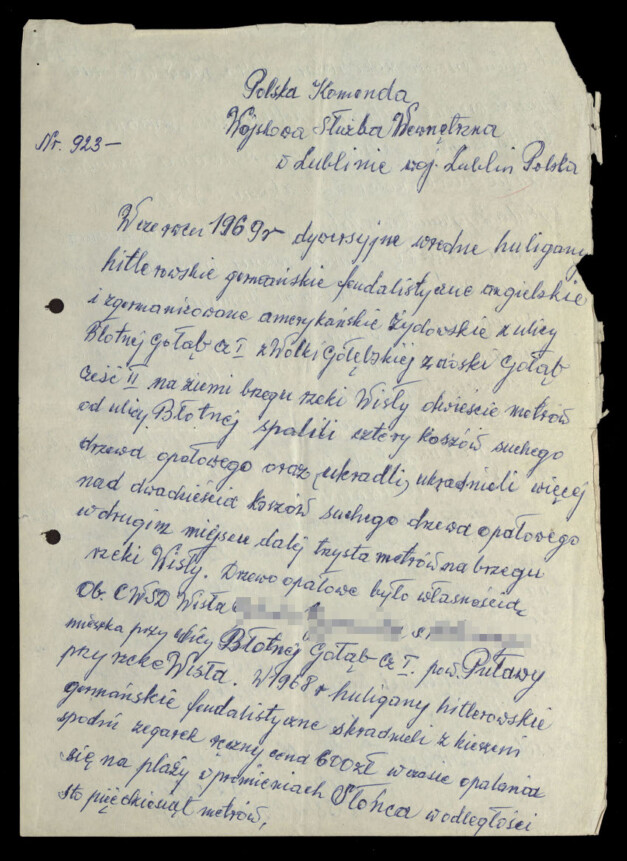 Polska Komenda
Wojskowa Służba Wewnętrzna
Nr. 923 –
w Lublinie woj. Lublin Polska
W czerwcu 1969r dywersyjne wredne huligany
hitlerowskie germańskie feudalistyczne angielskie
i zgermanizowane amerykańskie żydowskie z ulicy
Błotnej Gołąb cz I z Wólki Gołębskiej z wioski Gołąb
cześć II na ziemi brzegu rzeki Wisły dwieście metrów
od ulicy Błotnej spalili cztery koszów suchego
drzewa opałowego oraz (ukradli) ukradnieli więcej
nad dwadzieścia koszów suchego drzewa opałowego
w drugim miejscu dalej trzysta metrów na brzegu
rzeki Wisły. Drzewo opałowe było własnością
Ob. CWSD Wisła
mieszka przy ulicy Błotnej Gołąb cz I. pow. Puławy
przy rzece Wisła. W 1968r huligany hitlerowskie
germańskie feudalistyczne skradnieli z kieszeni
spodni zegarek ręczny cena 600 zł w czasie opalania
się na plaży w promieniach Słońca w odległości
sto pięćdziesiąt metrów,